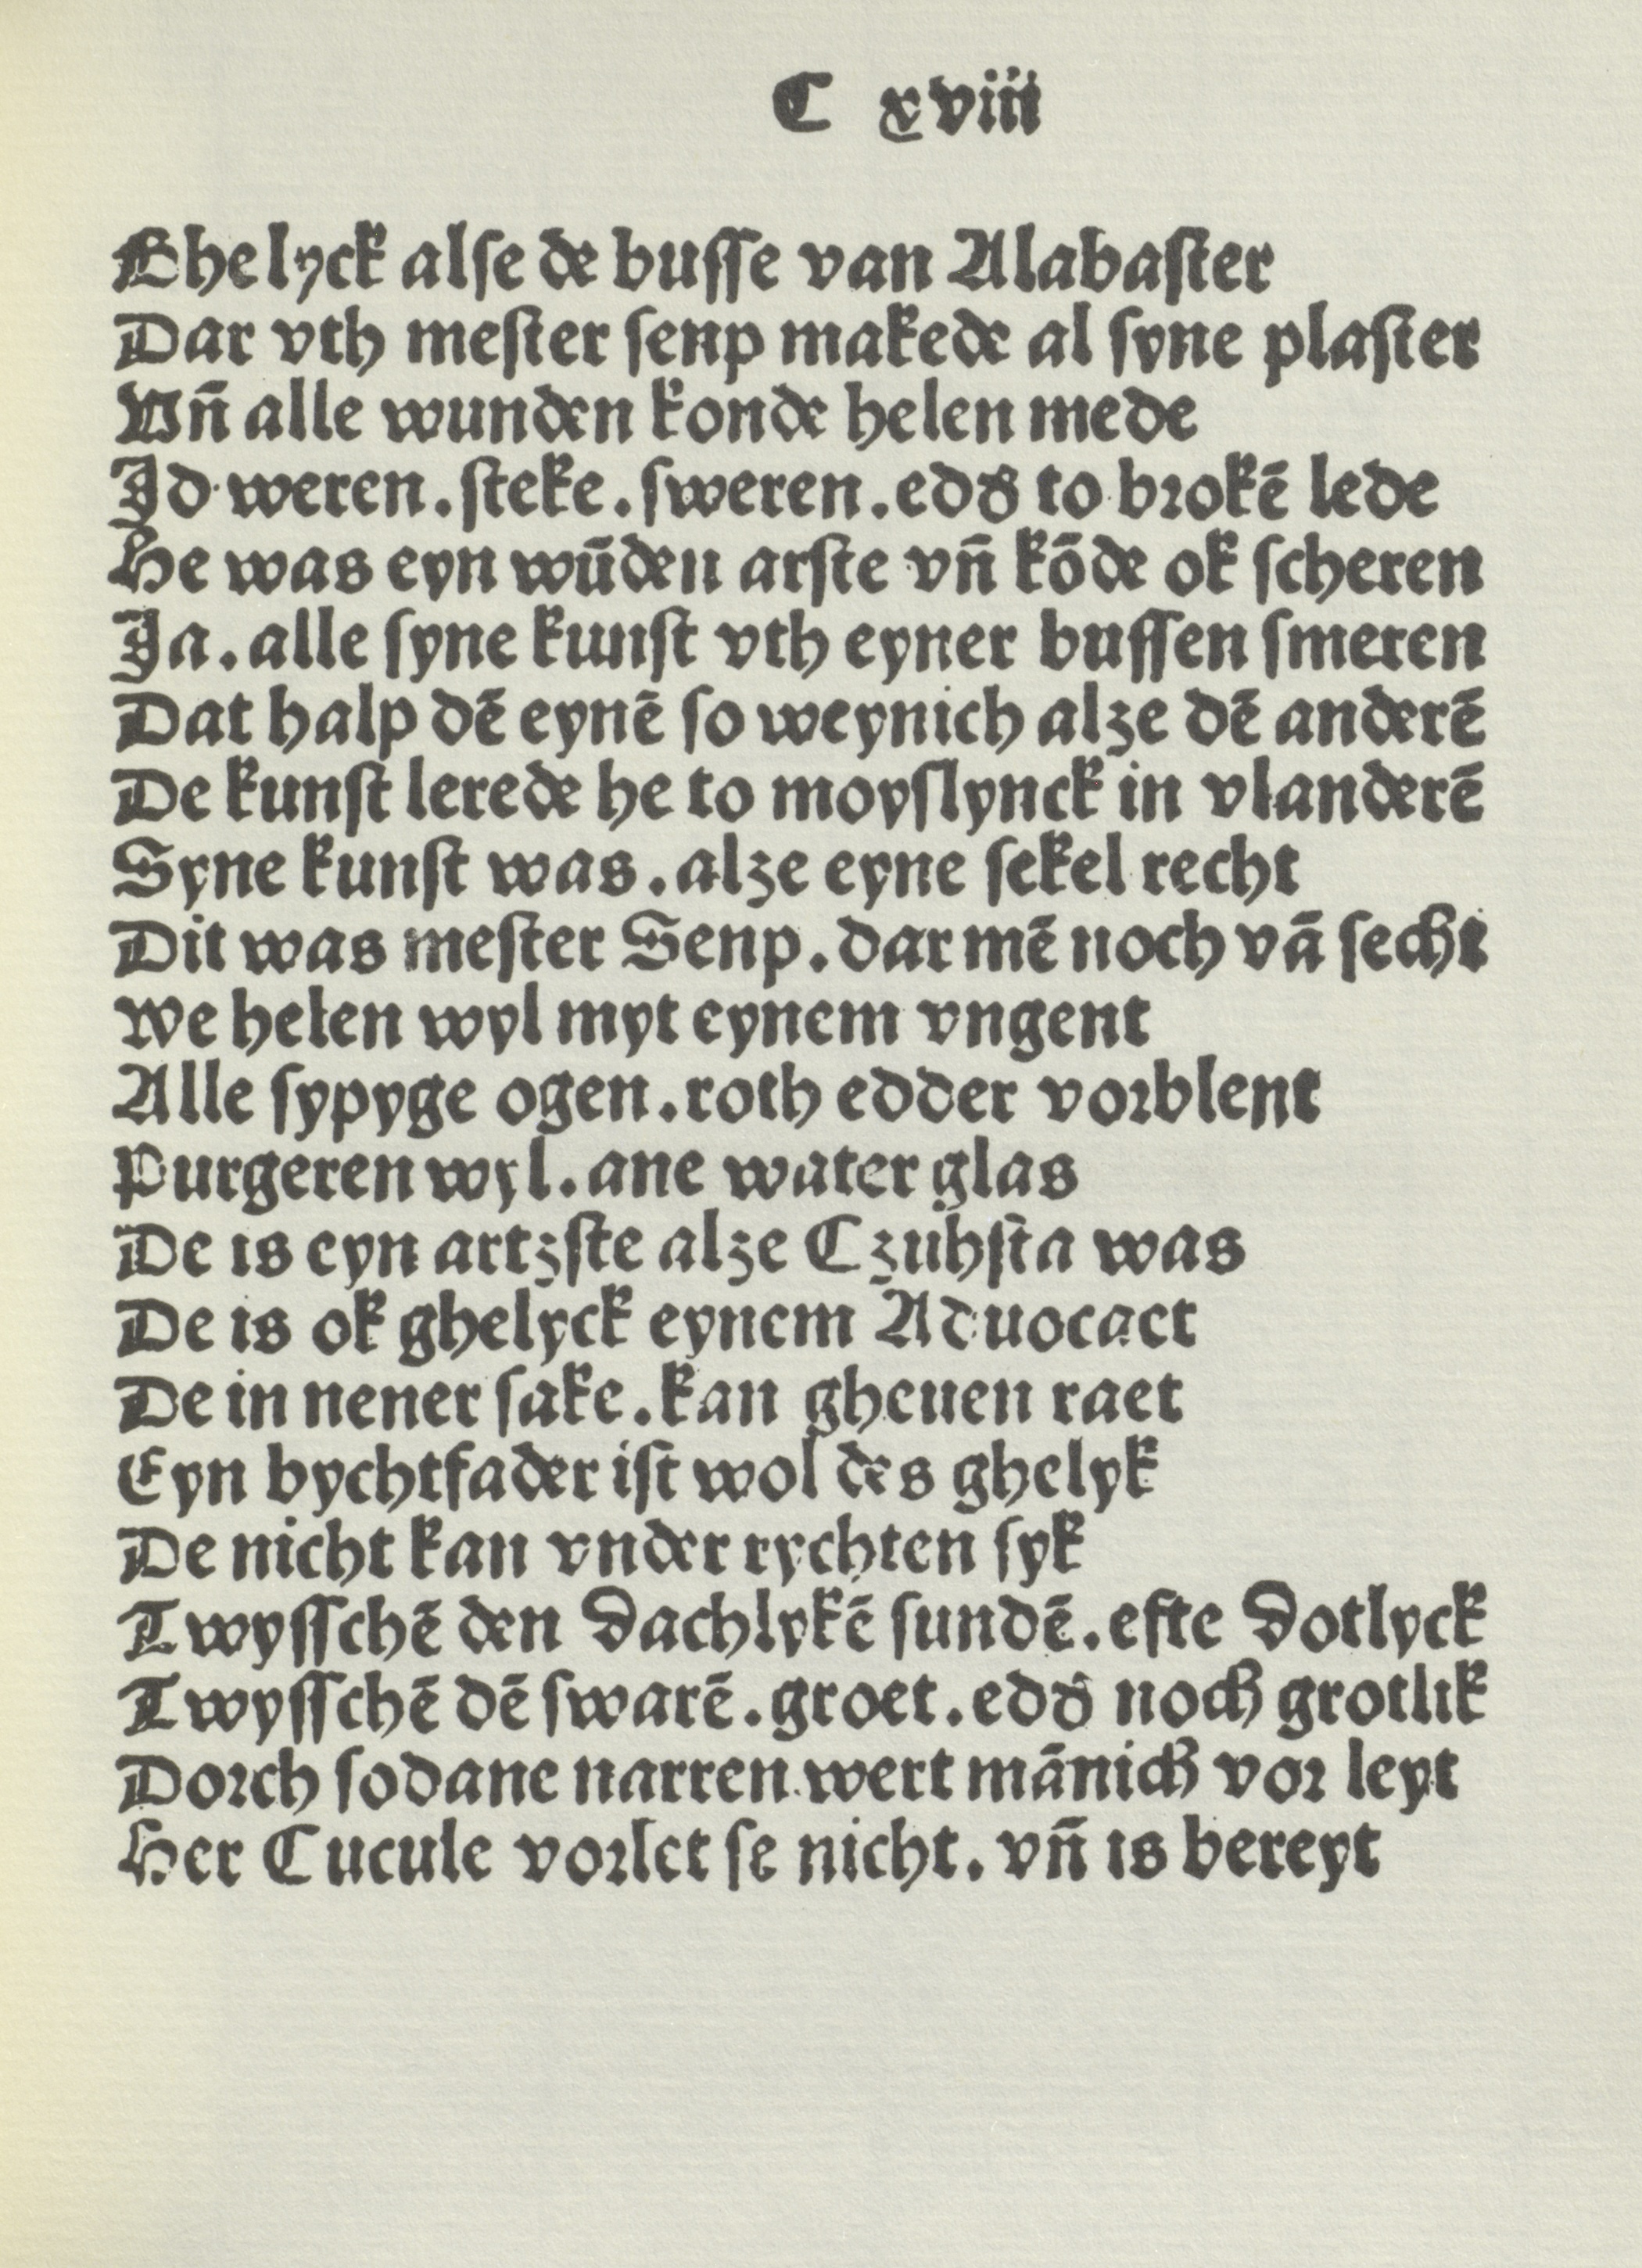 C xviii
Ghelyck alse de busse van Alabaster
Dar vth mester senp makede al syne plaster
Vñ alle wunden konde helen mede
Id weren. steke. sweren. edd’ to brokē lede
He was eyn wūden arste vñ kōde ok scheren
Ja. alle syne kunst vth eyner bussen smeren
Dat halp dē eynē so weynich alze dē anderē
De kunst lerede he to moyslynck in vlanderē
Syne kunst was. alze eyne sekel recht
Dit was mester Senp. dar mē noch vā secht
We helen wyl myt eynem vngent
Alle sypyge ogen. roth edder vorblent
Purgeren wyl. ane water glas
De is eyn artzste alze Czuhsta was
De is ok ghelyck eynem Aduocact
De in nener sake. kan gheuen raet
Eyn bychtfader ist wol des ghelyk
De nicht kan vnder rychten syk
Twysschē den Dachlykē sundē. efte Dotlyck
Twysschē dē swarē. groet. edd’ noch grotlik
Dorch sodane narren wert mānich vor leyt
Her Cucule vorlet se nicht. vñ is bereyt